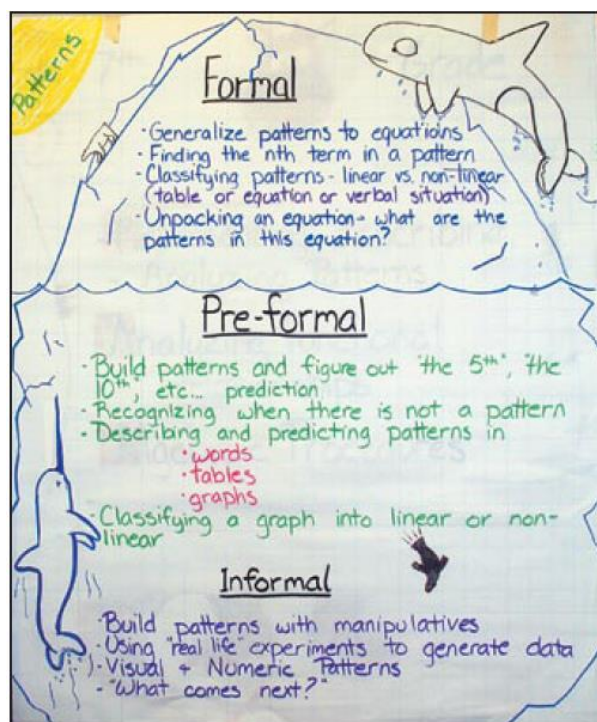 Patterns
Formal
· Generalize patterns to equations
· Finding the nth term in a pattern
· Classifying patterns - linear vs. non-linear
(table or equation or verbal situation)
· Unpacking an equation - what are the
patterns in this equation?
Pre-formal
· Build patterns and figure out "the 5th", "the
10th", etc... prediction
· Recognizing when there is not a pattern
· Describing and predicting patterns in
· words
· tables
· graphs
· Classifying a graph into linear or non-
linear
Informal
· Build patterns with manipulatives
· Using "real life" experiments to generate data
· Visual + Numeric Patterns
· "What comes next?"